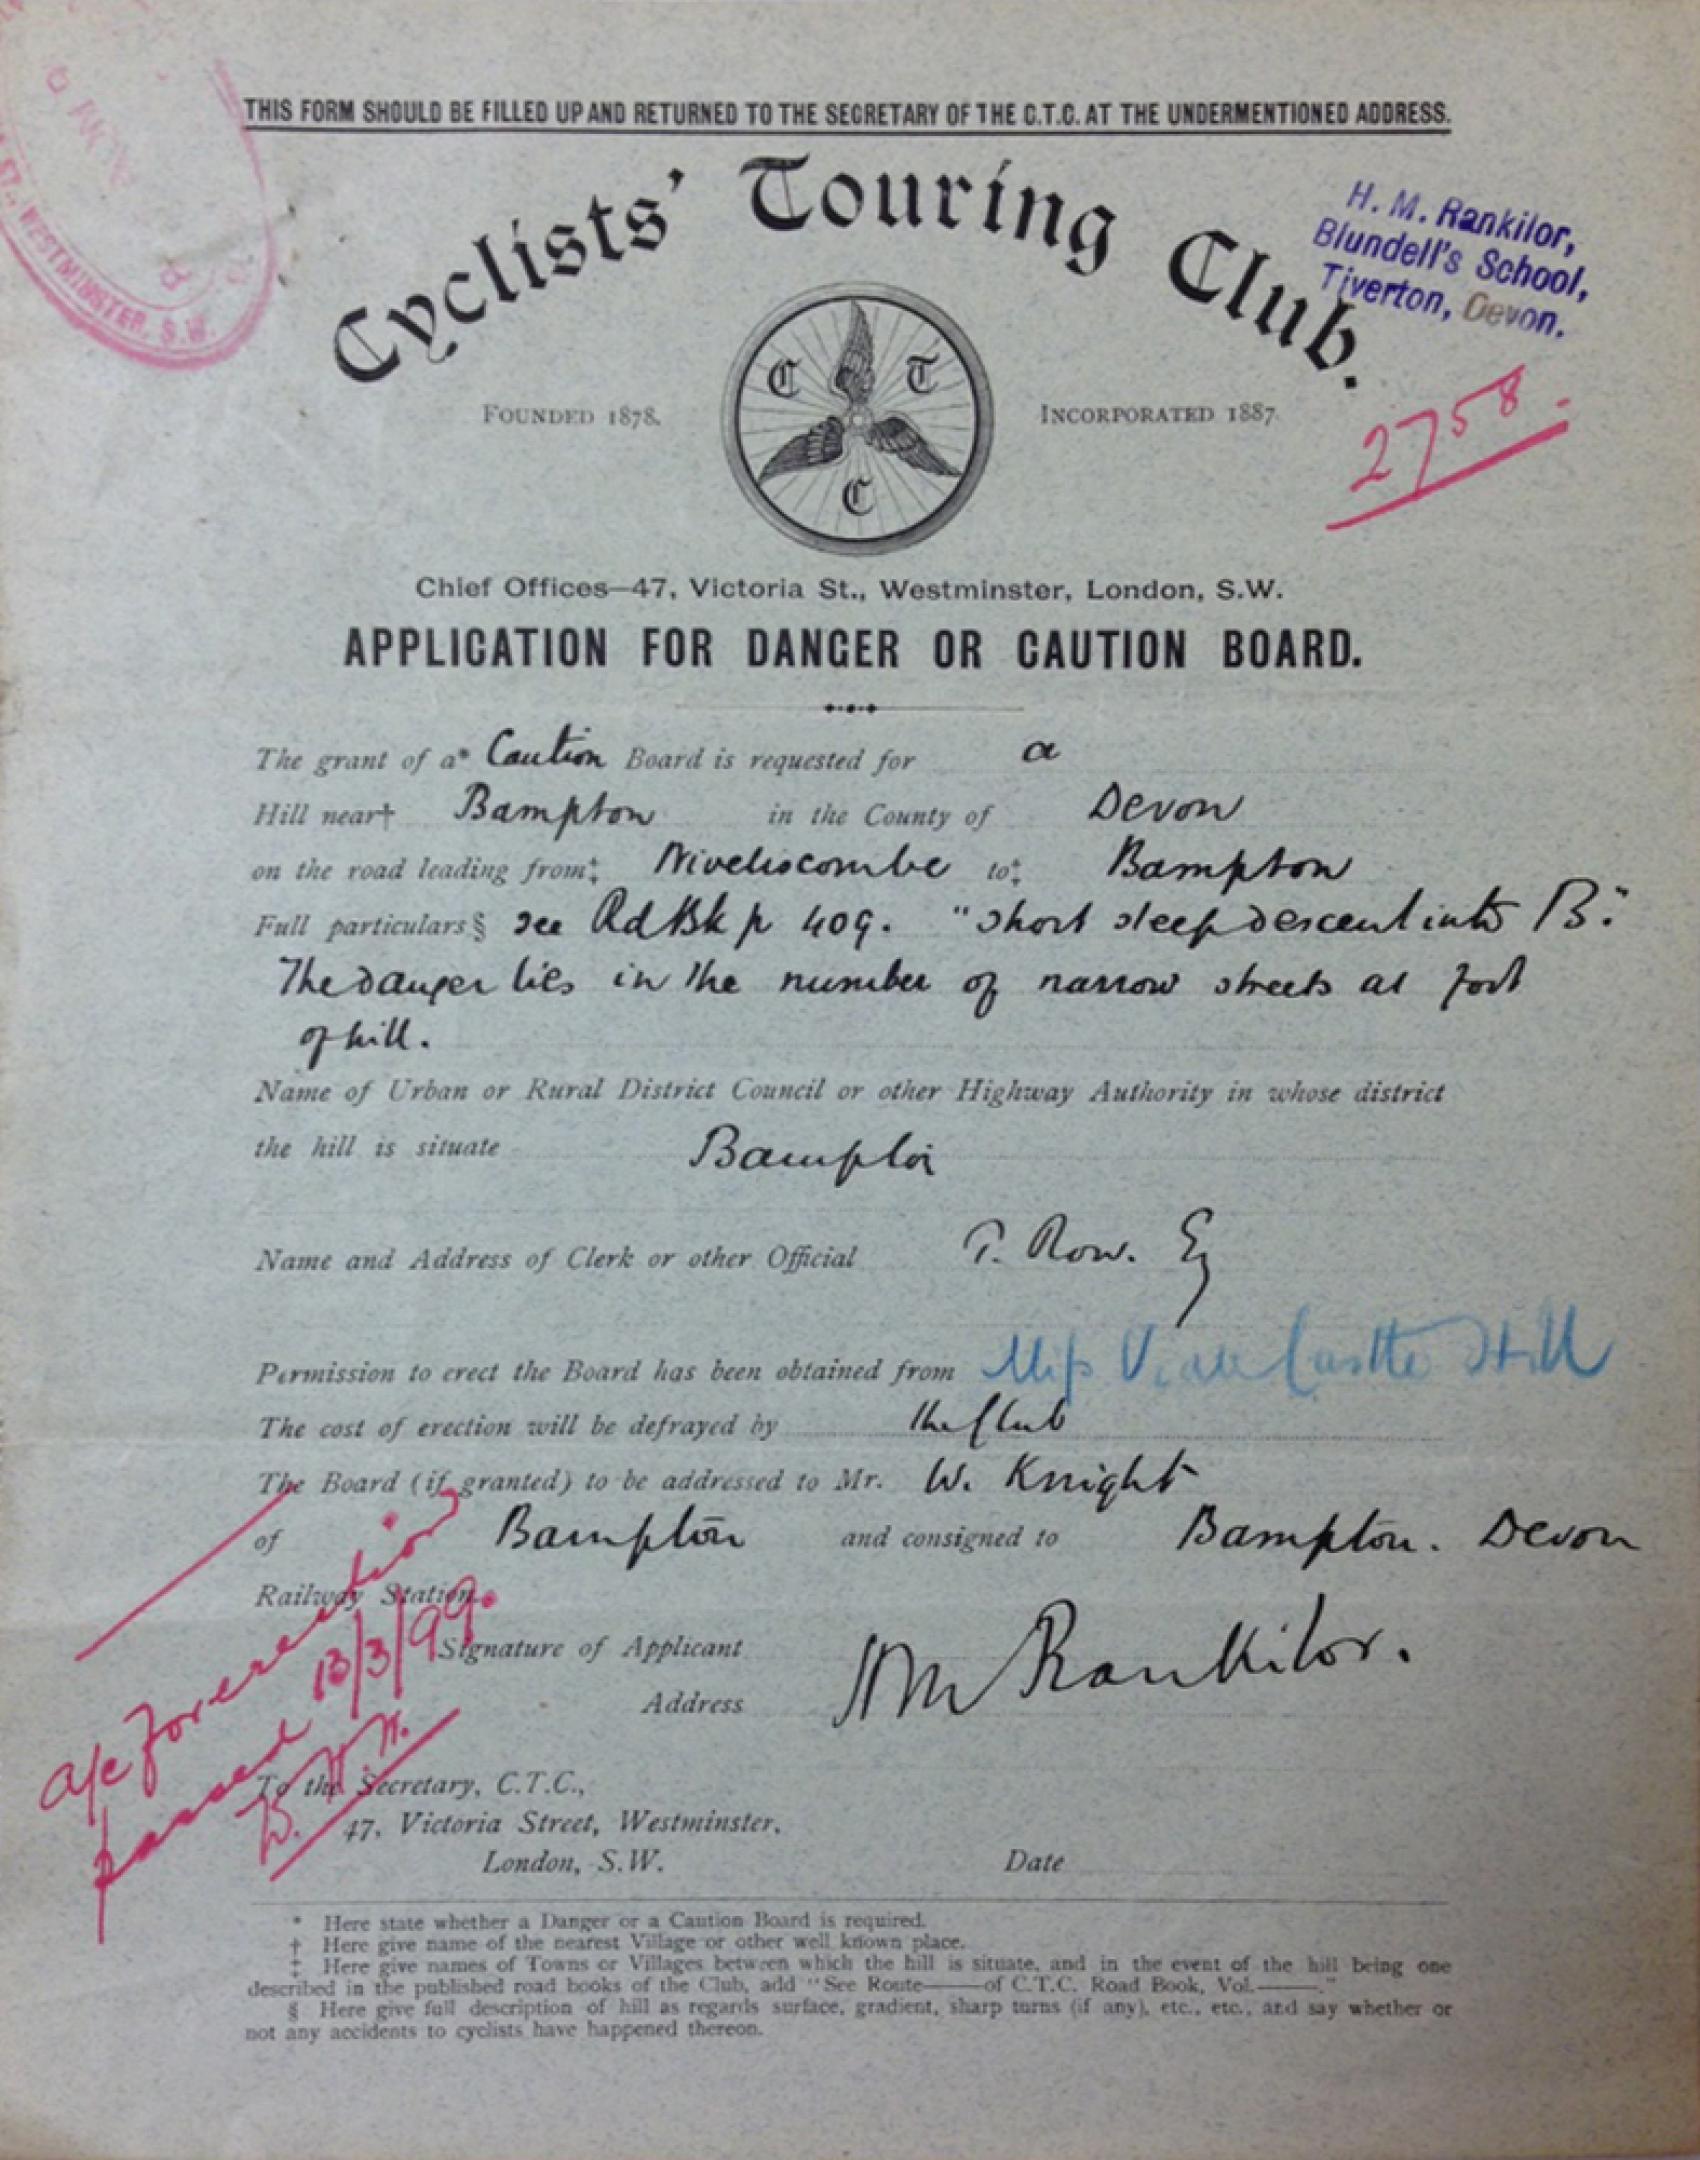 THIS FORM SHOULD BE FILLED UP AND RETURNED TO THE SECRETARY OF THE C.T.C. AT THE UNDERMENTIONED ADDRESS.
Cyclists' Touring Club.
H. M. Rankilor,
Blundell's School,
Tiverton, Devon.
WESTMINSTER, S.W.
C T C
FOUNDED 1878.
INCORPORATED 1887.
2758.
Chief Offices—47, Victoria St., Westminster, London, S.W.
APPLICATION FOR DANGER OR CAUTION BOARD.
The grant of a* Caution Board is requested for a
Hill near† Bampton in the County of Devon
on the road leading from‡ Wiveliscombe to‡ Bampton
Full particulars § see Rd Bk p 409. "short steep descent into B."
The danger lies in the number of narrow streets at foot
of hill.
Name of Urban or Rural District Council or other Highway Authority in whose district
the hill is situate Bampton
Name and Address of Clerk or other Official T. Row. Esq
Permission to erect the Board has been obtained from Miss Castle Hill
The cost of erection will be defrayed by the Club
The Board (if granted) to be addressed to Mr. W. Knight
of Bampton and consigned to Bampton. Devon
Railway Station.
Signature of Applicant HM Rankilor.
Address
a/c for erection
passed 13/3/99.
To the Secretary, C.T.C.,
47, Victoria Street, Westminster,
London, S.W.
Date
* Here state whether a Danger or a Caution Board is required.
† Here give name of the nearest Village or other well known place.
‡ Here give names of Towns or Villages between which the hill is situate, and in the event of the hill being one
described in the published road books of the Club, add "See Route——of C.T.C. Road Book, Vol.——."
§ Here give full description of hill as regards surface, gradient, sharp turns (if any), etc., etc., and say whether or
not any accidents to cyclists have happened thereon.